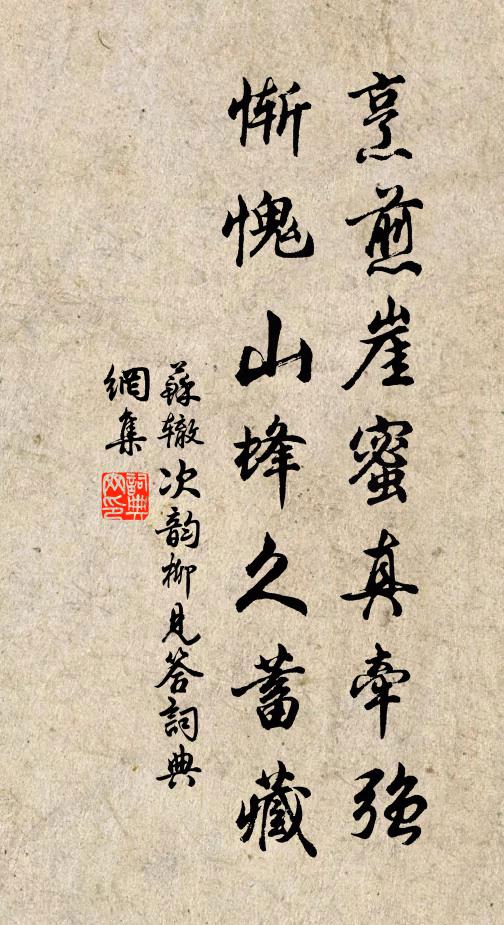 烹煎崖蜜真牵强
惭愧山蜂久蓄藏
蘇辙次韵柳见答詞典
網集
詞典
网印